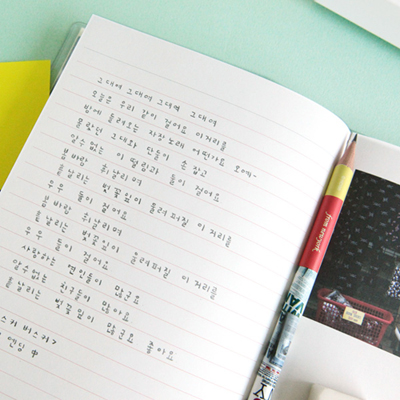 그대여 그대여 그대여 그대여
오늘은 우리 같이 걸어요 이 거리를
밤에 들려오는 자장노래 어떤가요 오예~
몰랐던 그대와 단둘이 손 잡고
알 수 없는 이 떨림과 둘이 걸어요
봄바람 휘날리며
흩날리는 벚꽃 잎이 울려 퍼질 이 거리를
우우 둘이 걸어요
봄바람 휘날리며
흩날리는 벚꽃 잎이 울려 퍼질 이 거리를
우우 둘이 걸어요
사랑하는 연인들이 많군요
알 수 없는 친구들이 많아요
흩날리는 벚꽃 잎이 많군요 좋아요
스커 버스커>
엔딩 中